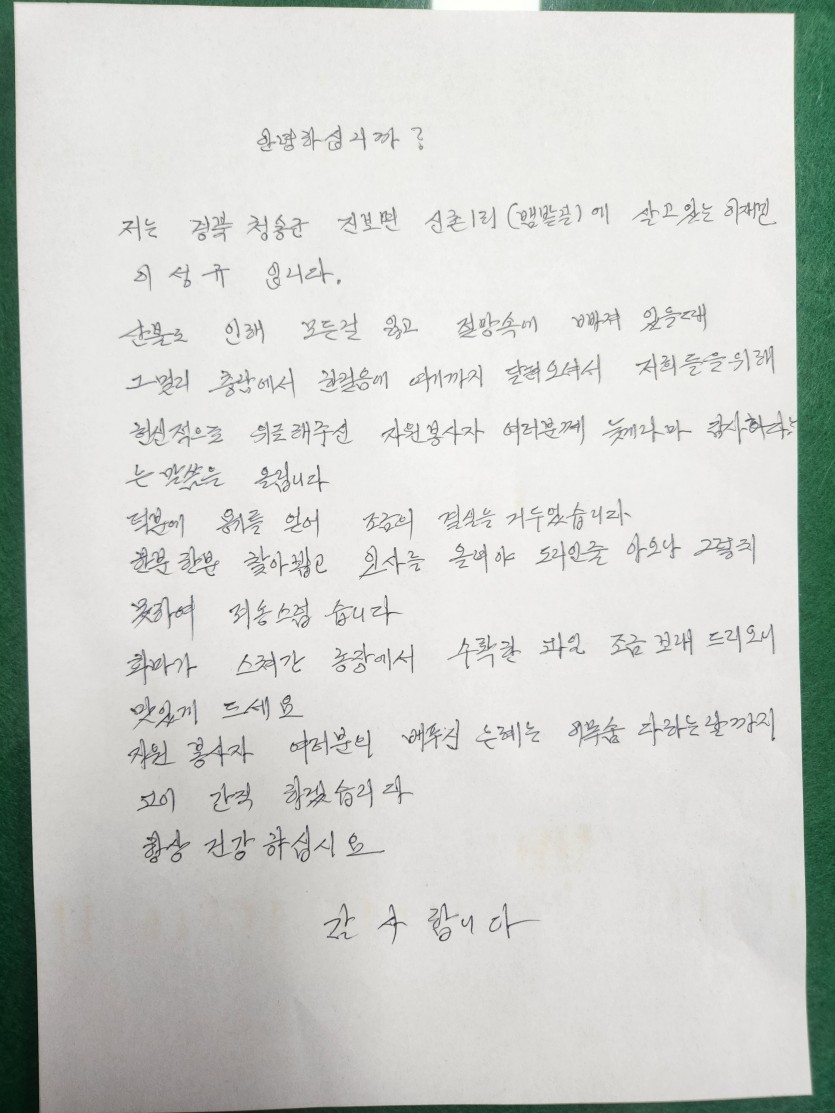 안녕하십니까?
저는 경북 청송군 진보면 신촌1리(뱀밭골)에 살고있는 이재민
이성규 입니다.
산불로 인해 모든걸 잃고 절망속에 빠져 있을때
그멀리 충남에서 한걸음에 여기까지 달려오셔서 저희들을위해
헌신적으로 위로해주신 자원봉사자 여러분께 늦게라마 감사하다는
는 말씀을 올립니다
덕분에 용기를 얻어 조금의 결실을 거두었습니다
한분한분 찾아뵙고 인사를 올려야 도리인줄 아오나 그렇치
못하여 죄송스럽 습니다
화마가 스쳐간 농장에서 수확한 과일 조금 보내 드리오니
맛있게 드세요
자원 봉사자 여러분의 베푸신 은혜는 이목숨 다하는날까지
고이 간직 하겠습니다
항상 건강하십시요
감사합니다